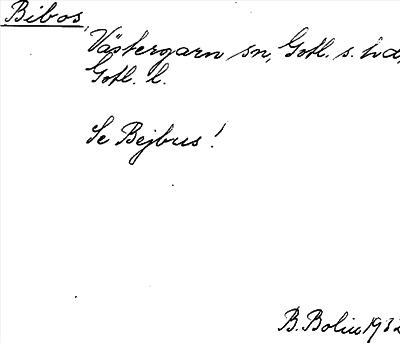 Bibos,
Västergarn sn, Gotl. s. hd,
Gotl. l.
Se Bejbus!
B. Bolin 1932